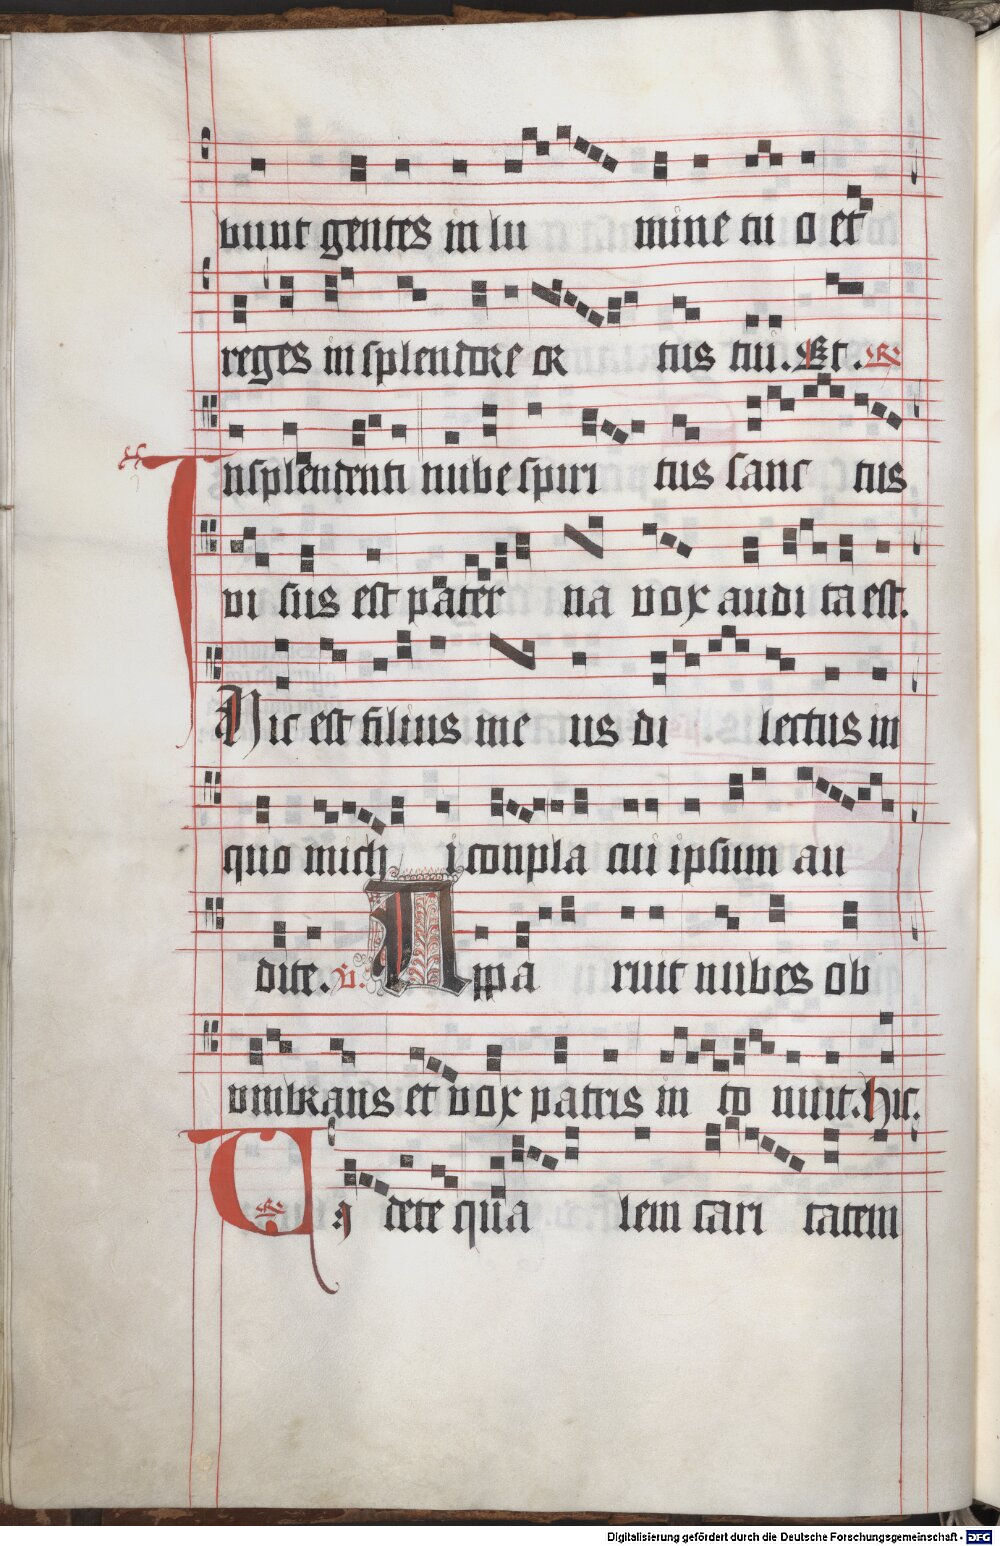 bunt gentes in lu mine tu o et
reges in splendore or tus tui. Et. R
In splendenti nube spiri tus sanc tus
vi sus est pater na vox audi ta est.
Hic est filius me us di lectus in
quo mich i conpla cui ipsum au
dite. V. Appa ruit nubes ob
umbrans et vox patris in to nuit. Hic.
R Vi dete qua lem cari tatem
Digitalisierung gefördert durch die Deutsche Forschungsgemeinschaft - DFG